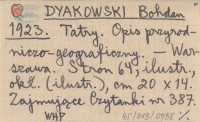 DYAKOWSKI Bohdan
1923. Tatry. Opis przyrod-
niczo-geograficzny. — War-
szawa. Stron 64, ilustr.,
okł. (ilustr.), cm 20 x 14.
Zajmujące Czytanki nr 387.
WHP